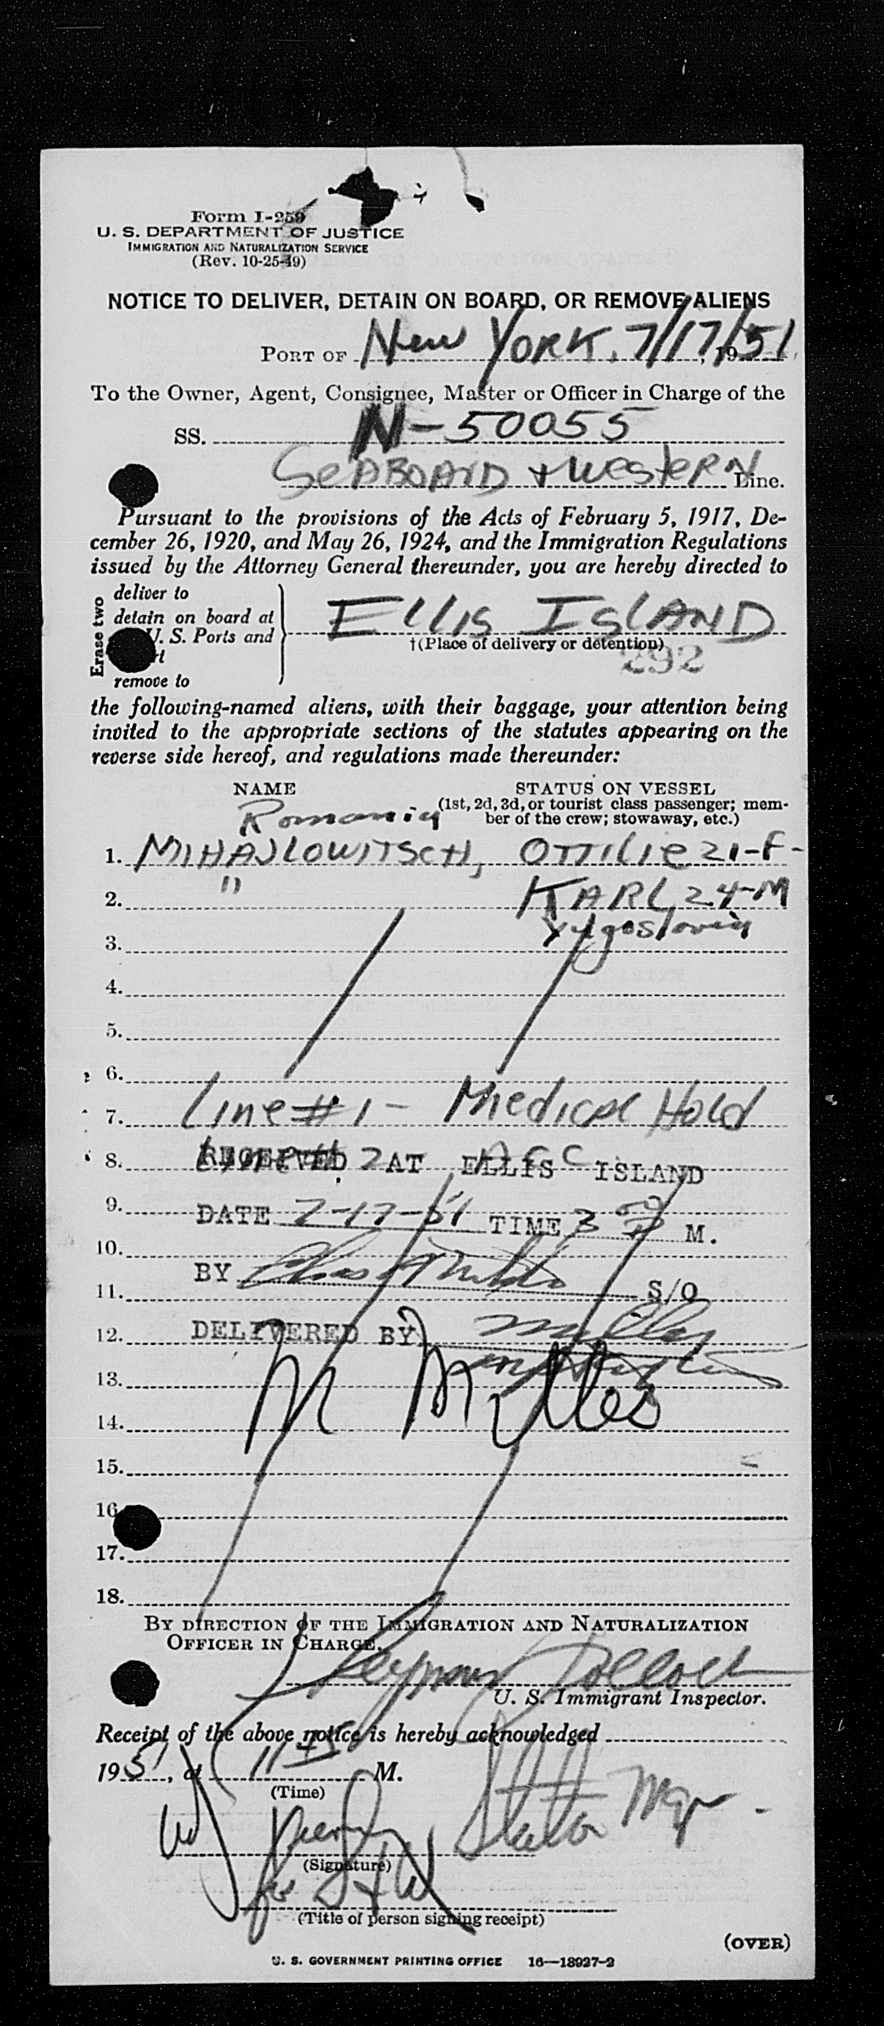 Form I-259
U. S. DEPARTMENT OF JUSTICE
IMMIGRATION AND NATURALIZATION SERVICE
(Rev. 10-25-49)
NOTICE TO DELIVER, DETAIN ON BOARD, OR REMOVE ALIENS
PORT OF New YORK, 7/17/51
To the Owner, Agent, Consignee, Master or Officer in Charge of the
SS. N-50055
SeABOArD + WesterN Line.
Pursuant to the provisions of the Acts of February 5, 1917, De-
cember 26, 1920, and May 26, 1924, and the Immigration Regulations
issued by the Attorney General thereunder, you are hereby directed to
Erase two
deliver to
detain on board at
U. S. Ports and
remove to
ELLIS ISLAND
†(Place of delivery or detention)
292
the following-named aliens, with their baggage, your attention being
invited to the appropriate sections of the statutes appearing on the
reverse side hereof, and regulations made thereunder:
NAME STATUS ON VESSEL
(1st, 2d, 3d, or tourist class passenger; mem-
ber of the crew; stowaway, etc.)
Romania
1. MIHAJLOWITSCH, OTTILIE 21-F-
2. " KARL 24-M
Yugoslavia
3.
4.
5.
6.
7. Line #1 - Medical Hold
8. RECEIVED AT ELLIS ISLAND
9. DATE 7-17-51 TIME 3 M.
10.
BY S/O
11.
12. DELIVERED BY
13.
14.
15.
16.
17.
18.
BY DIRECTION OF THE IMMIGRATION AND NATURALIZATION
OFFICER IN CHARGE.
U. S. Immigrant Inspector.
Receipt of the above notice is hereby acknowledged
1951, at 11 45 M.
(Time)
(Signature)
(Title of person signing receipt)
(OVER)
U. S. GOVERNMENT PRINTING OFFICE 16—18927-2